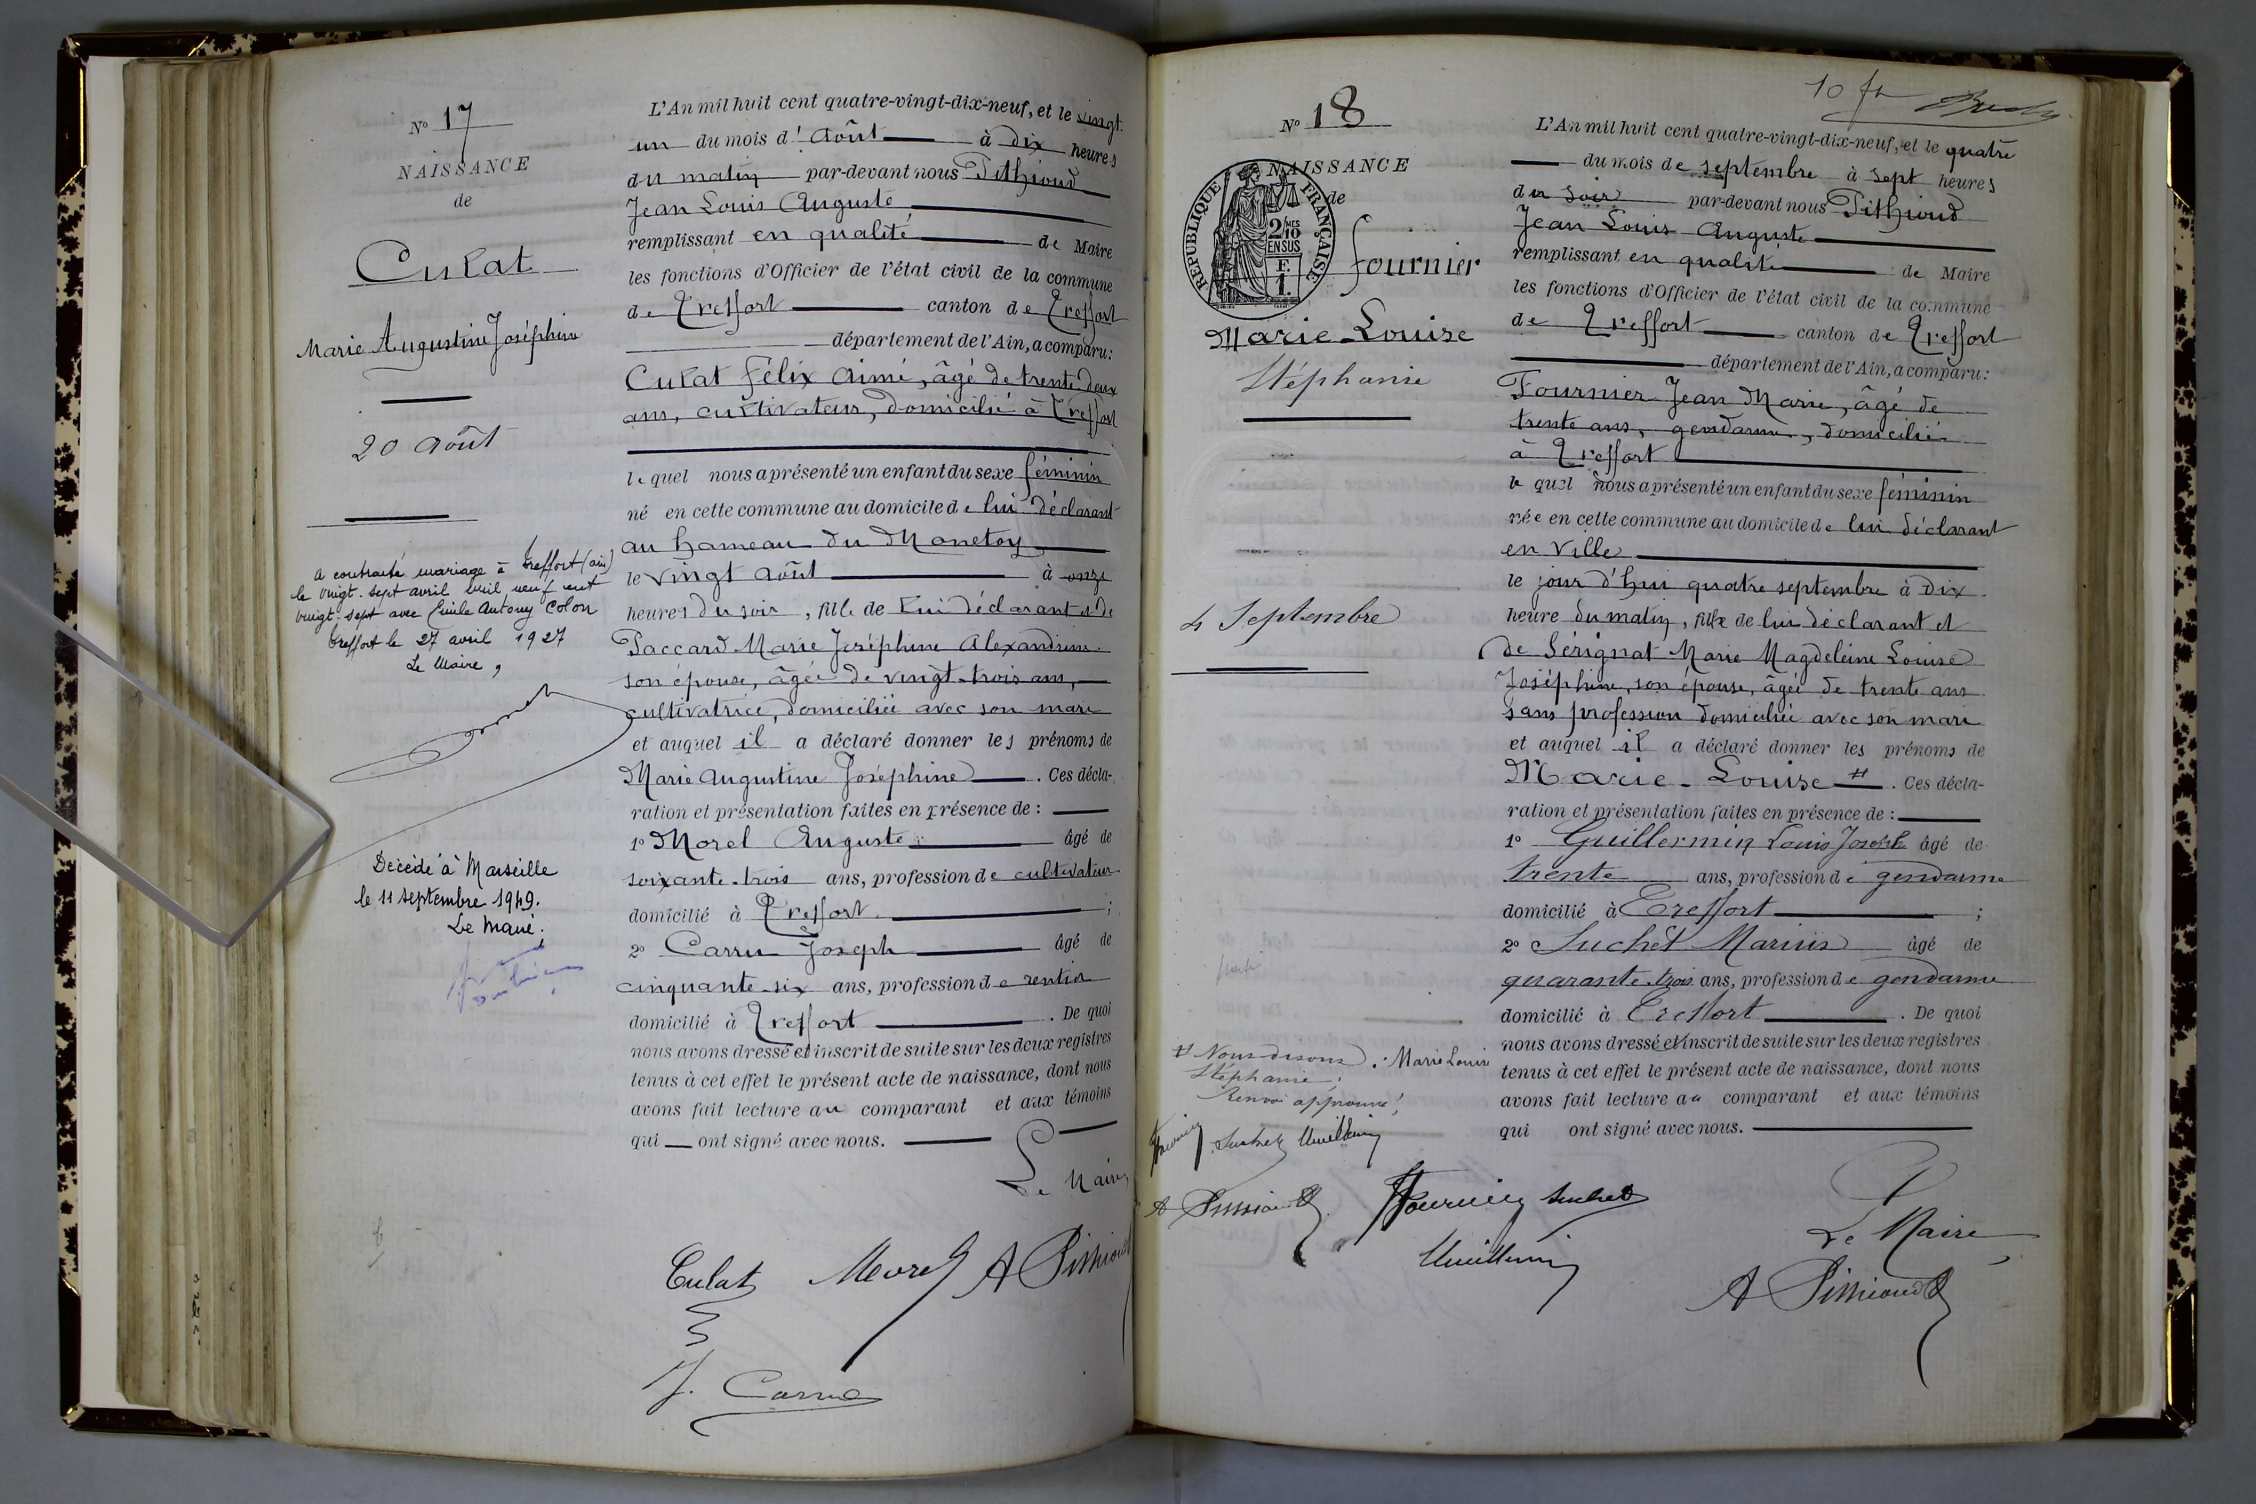 N° 17
NAISSANCE
de
Culat
Marie Augustine Joséphine
20 Août
a contracté mariage à Treffort (ain)
le vingt-sept avril mil neuf cent
vingt-sept avec Emile Antony Colon
Treffort le 27 avril 1927
Le Maire,
Décédé à Marseille
le 11 septembre 1949.
Le Maire.
L'An mil huit cent quatre-vingt-dix-neuf, et le vingt
un du mois d' Août à dix heures
du matin par-devant nous Pithioud
Jean Louis Auguste
remplissant en qualité de Maire
les fonctions d'Officier de l'état civil de la commune
de Treffort canton de Treffort
département de l'Ain, a comparu:
Culat Félix Aimé, âgé de trente deux
ans, cultivateur, domicilié à Treffort
lequel nous a présenté un enfant du sexe féminin
né en cette commune au domicile de lui déclarant
au hameau du Monetoy
le vingt août à onze
heures du soir, fille de lui déclarant et de
Paccard Marie Joséphine Alexandrine
son épouse, âgée de vingt-trois ans,
cultivatrice, domiciliée avec son mari
et auquel il a déclaré donner les prénoms de
Marie Augustine Joséphine. Ces décla-
ration et présentation faites en présence de :
1° Morel Auguste âgé de
soixante-trois ans, profession de cultivateur
domicilié à Treffort ;
2° Carru Joseph âgé de
cinquante-six ans, profession de rentier
domicilié à Treffort. De quoi
nous avons dressé et inscrit de suite sur les deux registres
tenus à cet effet le présent acte de naissance, dont nous
avons fait lecture au comparant et aux témoins
qui ont signé avec nous.
Le Maire,
Culat Morel A Pithioud
J. Carru
10 fr
N° 18
NAISSANCE
de
RÉPUBLIQUE FRANÇAISE
2/10 EN SUS
F.
1.
Fournier
Marie-Louise
Stéphanie
4 Septembre
L'An mil huit cent quatre-vingt-dix-neuf, et le quatre
du mois de septembre à sept heures
du soir par-devant nous Pithioud
Jean Louis Auguste
remplissant en qualité de Maire
les fonctions d'Officier de l'état civil de la commune
de Treffort canton de Treffort
département de l'Ain, a comparu:
Fournier Jean Marie, âgé de
trente ans, gendarme, domicilié
à Treffort
lequel nous a présenté un enfant du sexe féminin
née en cette commune au domicile de lui déclarant
en ville
le jour d'hui quatre septembre à dix
heure du matin, fille de lui déclarant et
de Sérignat Marie Magdeleine Louise
Joséphine, son épouse, âgée de trente ans
sans profession domiciliée avec son mari
et auquel il a déclaré donner les prénoms de
Marie-Louise #. Ces décla-
ration et présentation faites en présence de :
1° Guillermin Louis Joseph âgé de
trente ans, profession de gendarme
domicilié à Treffort ;
2° Suchet Marius âgé de
quarante-trois ans, profession de gendarme
domicilié à Treffort. De quoi
nous avons dressé et inscrit de suite sur les deux registres
tenus à cet effet le présent acte de naissance, dont nous
avons fait lecture au comparant et aux témoins
qui ont signé avec nous.
# Nous disons : Marie Louise
Stéphanie.
Renvoi approuvé,
Fournier Suchet Guillermin
A Pithioud Fournier Suchet
Guillermin
Le Maire
A Pithioud